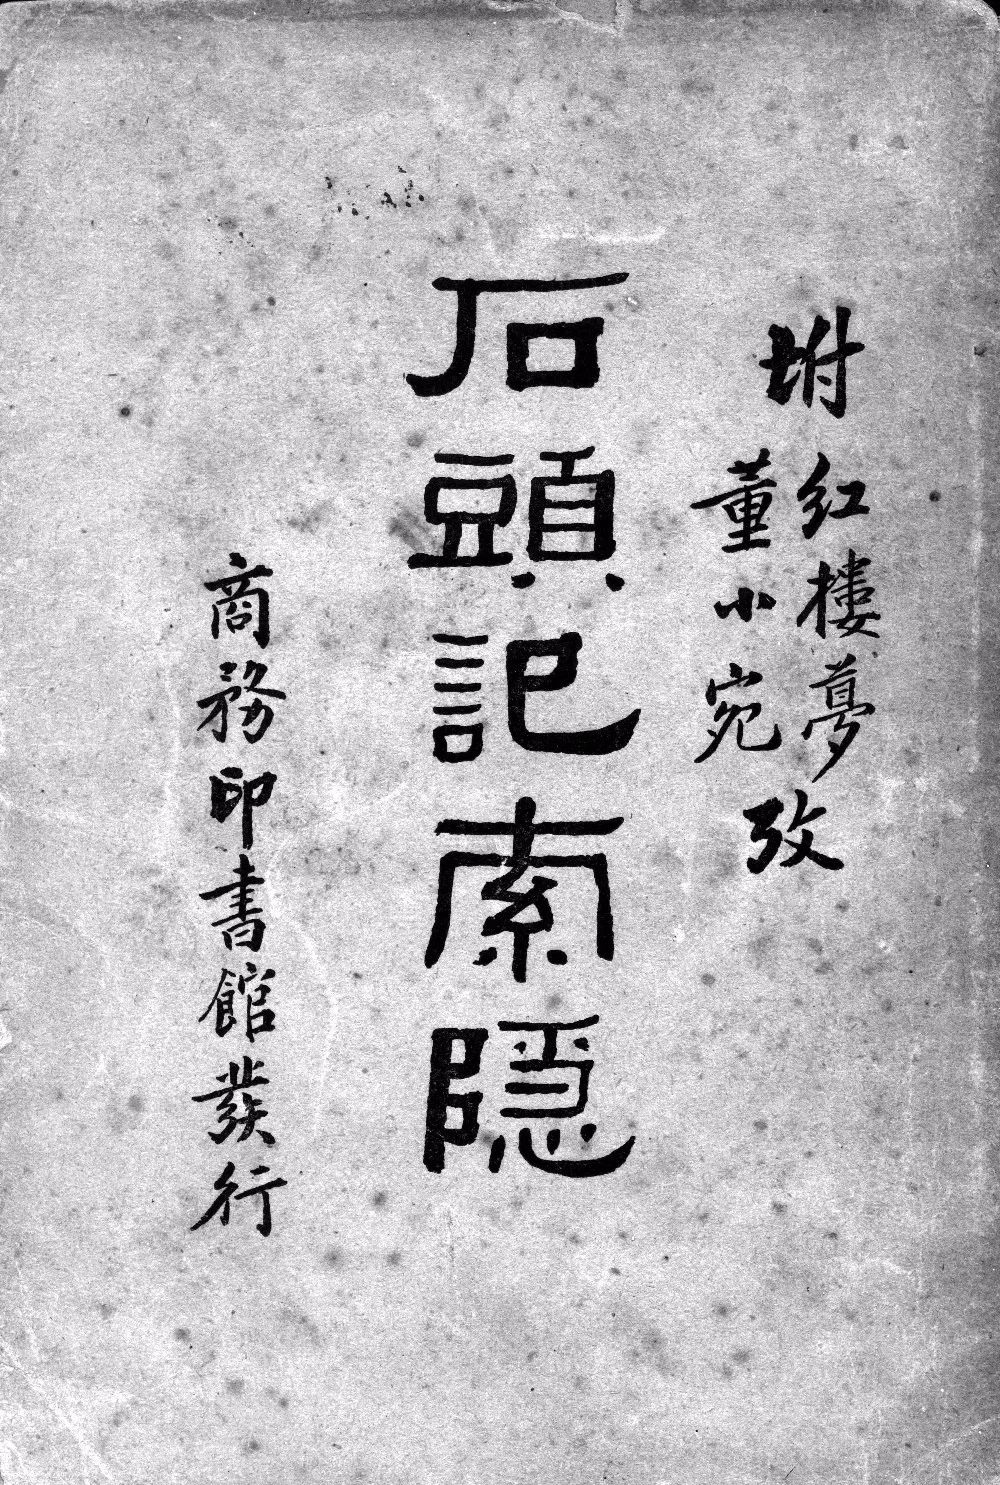 坿
红樓夢
董小宛
攷
石頭記索隱
商務印書館發行